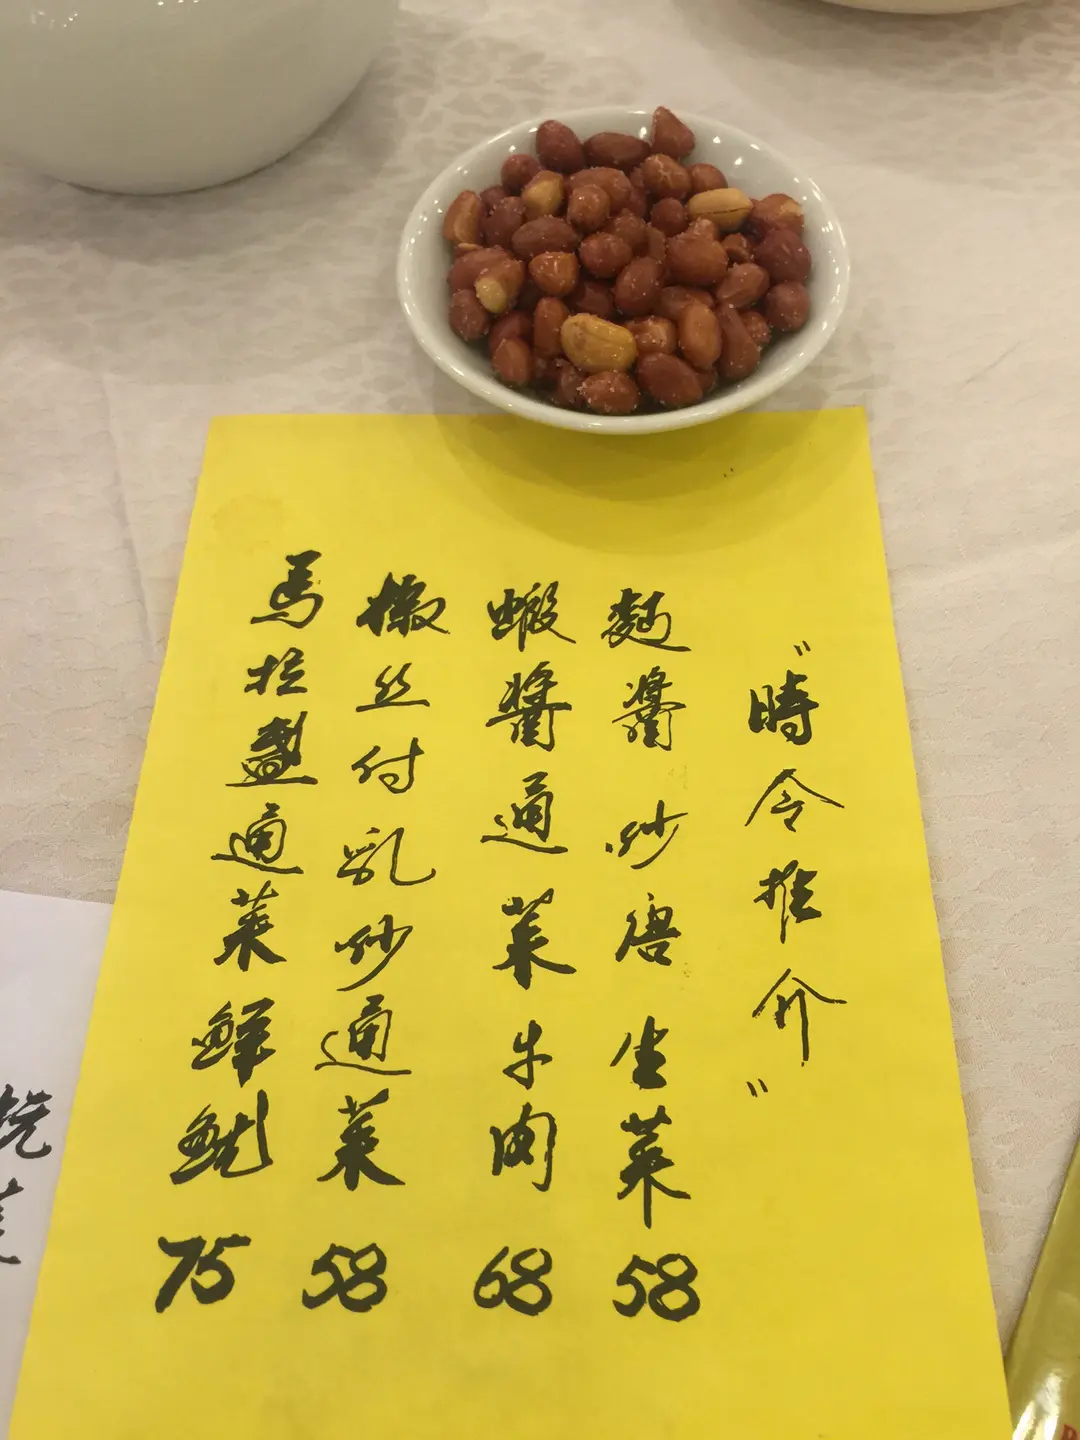 "時令推介"
麵醬炒唐生菜 58
蝦醬通菜牛肉 68
椒丝付乳炒通菜 58
馬拉盞通菜鮮魷 75